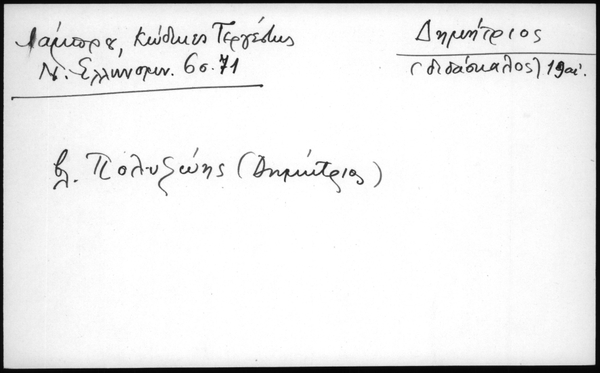 Λάμπρου, Κώδικες Τεργέστης
Ν. Ελληνομν. 6σ. 71
Δημήτριος
(διδάσκαλος) 19αι.
βλ. Πολυζώης (Δημήτριος)